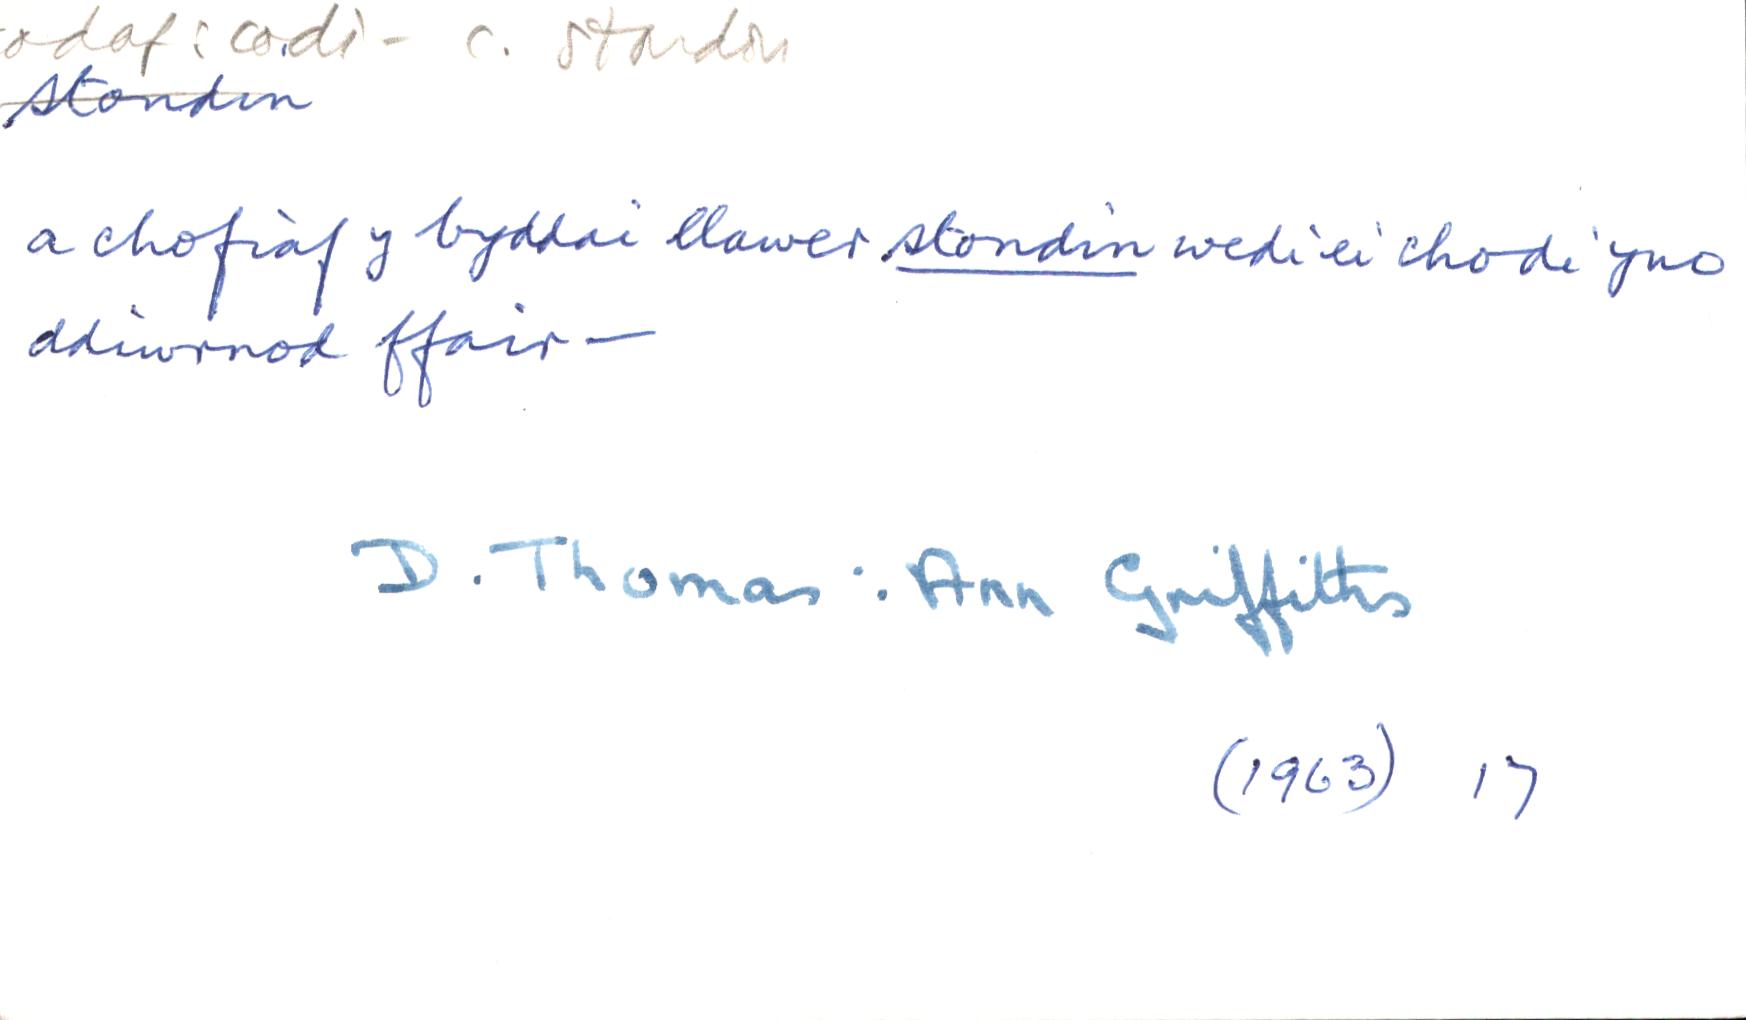 odaf: codi - c. stondin
stondin
a chofiaf y byddai llawer stondin wedi ei chodi yno
ddiwrnod ffair —
D. Thomas: Ann Griffiths
(1963) 17